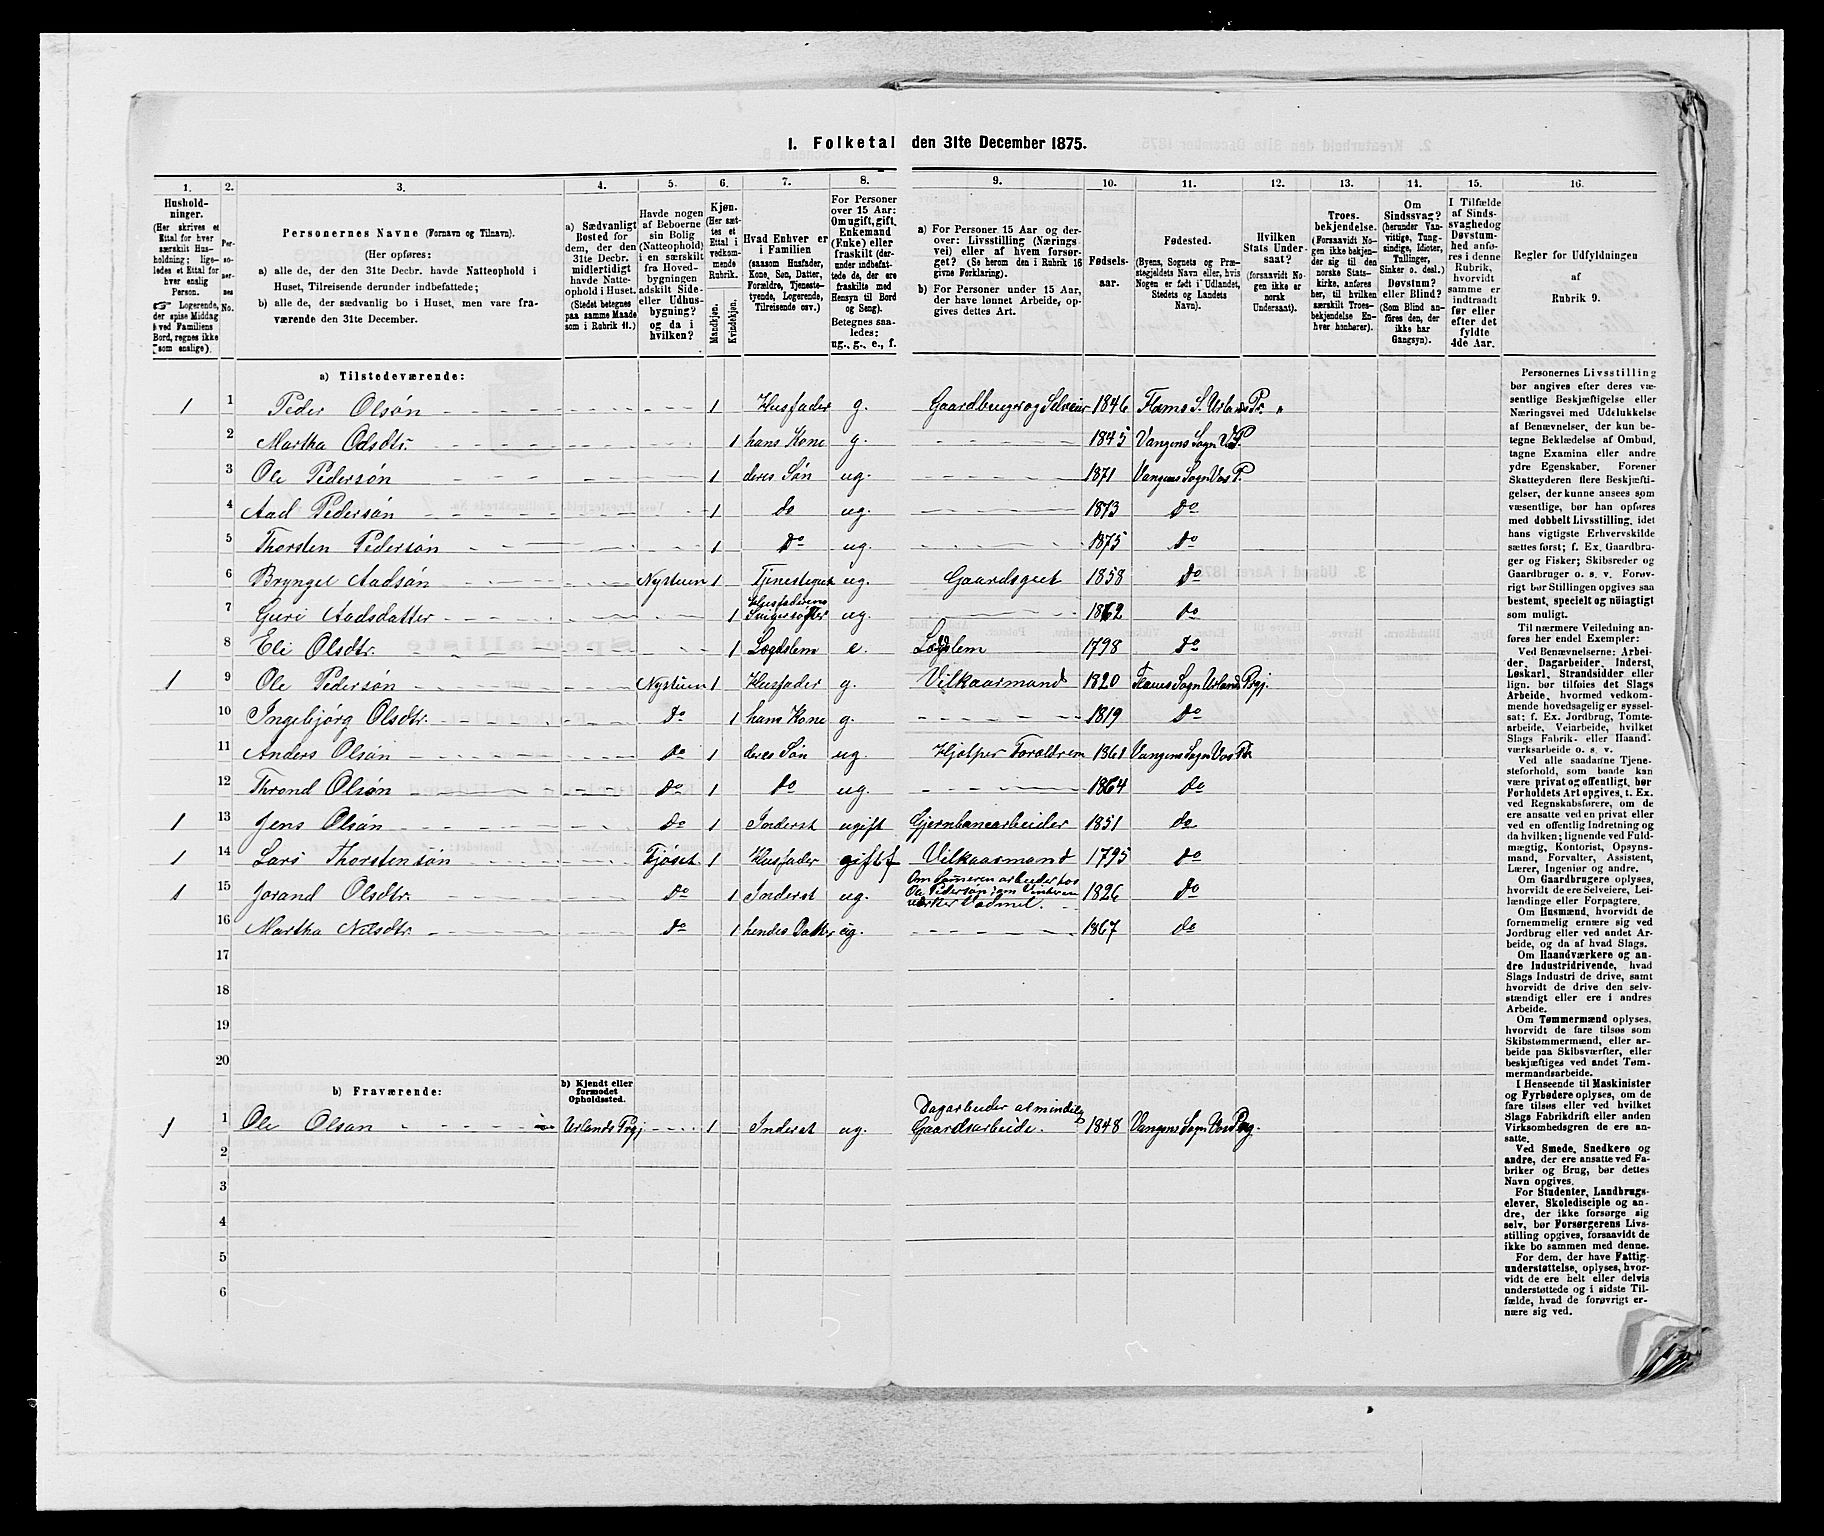 1. Folketal den 31te December 1875.
1. 2. 3. 4. 5. 6. 7. 8. 9. 10. 11. 12. 13. 14. 15. 16.
Hushold-
ninger.
(Her skrives et
Ettal for hver
særskilt Hus-
holdning; lige-
ledes et Ettal for
hver enslig
Person.
Logerende,
der spise Middag
ved Familiens
Bord, regnes ikke
som enslige).
Per-
so-
ner-
nes
No.
Personernes Navne (Fornavn og Tilnavn).
(Her opføres:
a) alle de, der den 31te Decbr. havde Natteophold i
Huset, Tilreisende derunder indbefattede;
b) alle de, der sædvanlig bo i Huset, men vare fra-
værende den 31te December.
a) Sædvanligt
Bosted for
dem, der den
31te Decbr.
midlertidigt
havde Natte-
ophold i Huset.
(Stedet betegnes
paa samme Maade
som i Rubrik 11.)
Havde nogen
af Beboerne
sin Bolig
(Natteophold)
i en særskilt
fra Hoved-
bygningen
adskilt Side-
eller Udhus-
bygning?
og da i
hvilken?
Kjøn.
(Her sæt-
tes et
Ettal i
vedkom-
mende
Rubrik.
Mandkjøn.
Kvindekjøn.
Hvad Enhver er
i Familien
(saasom Husfader,
Kone, Søn, Datter,
Forældre, Tjeneste-
tyende, Logerende,
Tilreisende osv.)
For Personer
over 15 Aar:
Om ugift, gift,
Enkemand
(Enke) eller
fraskilt (der-
under indbefat-
tede de, der ere
fraskilte med
Hensyn til Bord
og Seng).
Betegnes saa-
ledes:
ug., g., e., f.
a) For Personer 15 Aar og der-
over: Livsstilling (Nærings-
vei) eller af hvem forsør-
get? (Se herom den i Rubrik 16
givne Forklaring).
b) For Personer under 15 Aar,
der have lønnet Arbeide, op-
gives dettes Art.
Fødsels-
aar.
Fødested.
(Byens, Sognets og Præ-
stegjeldets Navn eller, hvis
Nogen er født i Udlandet,
Stedets og Landets
Navn).
Hvilken
Stats Under-
saat?
(forsaavidt No-
gen ikke er
norsk
Undersaat).
Troes-
bekjendelse.
(Forsaavidt No-
gen ikke bekjen-
der sig til den
norske Stats-
kirke, anføres
her, til hvilken
særskilt Troes-
bekjendelse En-
hver honhører).
Om
Sindssvag?
(herunder Van-
vittige, Tung-
sindige, Idioter,
Tullinger,
Sinker o. desl.)
Døvstum?
eller Blind?
(Som Blind an-
føres den, der
ikke har
Gangsyn).
I Tilfælde
af Sinds-
svaghed og
Døvstum-
hed anfø-
res i denne
Rubrik,
hvorvidt
samme er
indtraadt
før eller
efter det
fyldte
4de Aar.
Regler for Udfyldningen
af
Rubrik 9.
a) Tilstedeværende:
1 1 Peder Olsøn 1 Husfader g. Gaardbruger og Selveier 1846 Flams S. Urlands Pr.
2 Martha Odsdtr. 1 hans Kone g. 1845 Vangens Sogn V. P.
3 Ole Pedersøn 1 deres Søn ug. 1871 Vangens Sogn Vos P.
4 Aad Pedersøn 1 do ug. 1873 do
5 Thorsten Pedersøn 1 do ug. 1875 do
6 Bryngel Aadsøn Nystuen 1 Tjenestegut ug. Gaardsgut 1858 do
7 Guri Aadsdatter 1 Husfaderens Svigersøster ug. 1862 do
8 Eli Olsdtr. 1 Lægdslem e. Lægdslem 1798 do
1 9 Ole Pedersøn Nystuen 1 Husfader g. Vilkaarmand 1820 Flams Sogn Urlands Prgj.
10 Ingebjørg Olsdtr. do 1 hans Kone g. 1819 do
11 Anders Olsøn do 1 deres Søn ug. Hjelper Forældrene 1861 Vangens Sogn Vos Pr.
12 Thrond Olsøn do 1 do ug. 1864 do
1 13 Jens Olsøn do 1 Inderst ugift Gjernbanearbeider 1851 do
1 14 Lars Thorstensøn Fjøset 1 Husfader gift Vilkaarmand 1795 do
1 15 Jorand Olsdtr. do 1 Inderst ug. Om Sommeren arbeider hos
Ole Pedersøn; om Vinteren
virker Vadmel. 1826 do
16 Martha Nilsdtr. do 1 hendes Datter ug. 1867 do
17
18
19
20
b) Fraværende:
b) Kjendt eller
formodet
Opholdssted.
1 1 Ole Olsøn Urlands Prgj 1 Inderst ug. Dagarbeider almindelig
Gaardsarbeide. 1848 Vangens Sogn Vos Prg.
2
3
4
5
6
Personernes Livsstilling
bør angives efter deres væ-
sentlige Beskjæftigelse eller
Næringsvei med Udelukkelse
af Benævnelser, der kun be-
tegne Beklædelse af Ombud,
tagne Examina eller andre
ydre Egenskaber. Forener
Skatteyderen flere Beskjæfti-
gelser, der kunne ansees som
væsentlige, bør han opføres
med dobbelt Livsstilling, idet
hans vigtigste Erhvervskilde
sættes først; f. Ex. Gaardbru-
ger og Fisker; Skibsreder og
Gaardbruger o. s. v. Forøv-
rigt bør Stillingen opgives saa
bestemt, specielt og nøiagtigt
som muligt.
Til nærmere Veiledning an-
føres her endel Exempler:
Ved Benævnelserne: Arbei-
der, Dagarbeider, Inderst,
Løskarl, Strandsidder eller
lign. bør tilføies det Slags
Arbeide, hvormed vedkom-
mende hovedsagelig er syssel-
sat; f. Ex. Jordbrug, Tomte-
arbeide, Veiarbeide, hvilket
Slags Fabrik- eller Haand-
værksarbeide o. s. v.
Ved alle saadanne Tjene-
steforhold, som baade kan
være privat og offentligt, bør
Forholdets Art opgives, t. Ex.
ved Regnskabsførere, om de
ere ansatte ved en privat eller
ved en offentlig Indretning og
da hvilken; lignende ved Fuld-
mægtig, Kontorist, Opsyns-
mand, Forvalter, Assistent,
Lærer, Ingeniør og andre.
Om Gaardbrugere oplyses,
hvorvidt de ere Selveiere, Lei-
lændinge eller Forpagtere.
Om Husmænd, hvorvidt de
fornemmelig ernære sig ved
Jordbrug eller ved andet Ar-
beide, og da af hvad Slags.
Om Haandværkere og an-
dre Industridrivende, hvad
Slags Industri de drive, samt
hvorvidt de drive den selv-
stændigt eller ere i andres
Arbeide.
Om Tømmermænd oplyses,
hvorvidt de fare tilsøs som
Skibstømmermænd, eller ar-
beide paa Skibsværfter, eller
beskjæftiges ved andet Tøm-
mermandsarbeide.
I Henseende til Maskinister
og Fyrbødere oplyses, om de
fare tilsøs eller ved hvilket
Slags Fabrikdrift eller anden
Virksomhedsgren de ere an-
satte.
Ved Smede, Snedkere og
andre, der ere ansatte ved Fa-
briker og Brug, bør dettes
Navn opgives.
For Studenter, Landbrugs-
elever, Skoledisciple og an-
dre, der ikke forsørge sig
selv, bør Forsørgerens Livs-
stilling opgives, forsaavidt de
ikke bo sammen med denne.
For dem, der have Fattig-
understøttelse, oplyses, hvor-
vidt de ere helt eller delvis
understøttede og i sidste Til-
fælde, hvad de forøvrigt er-
nære sig ved.